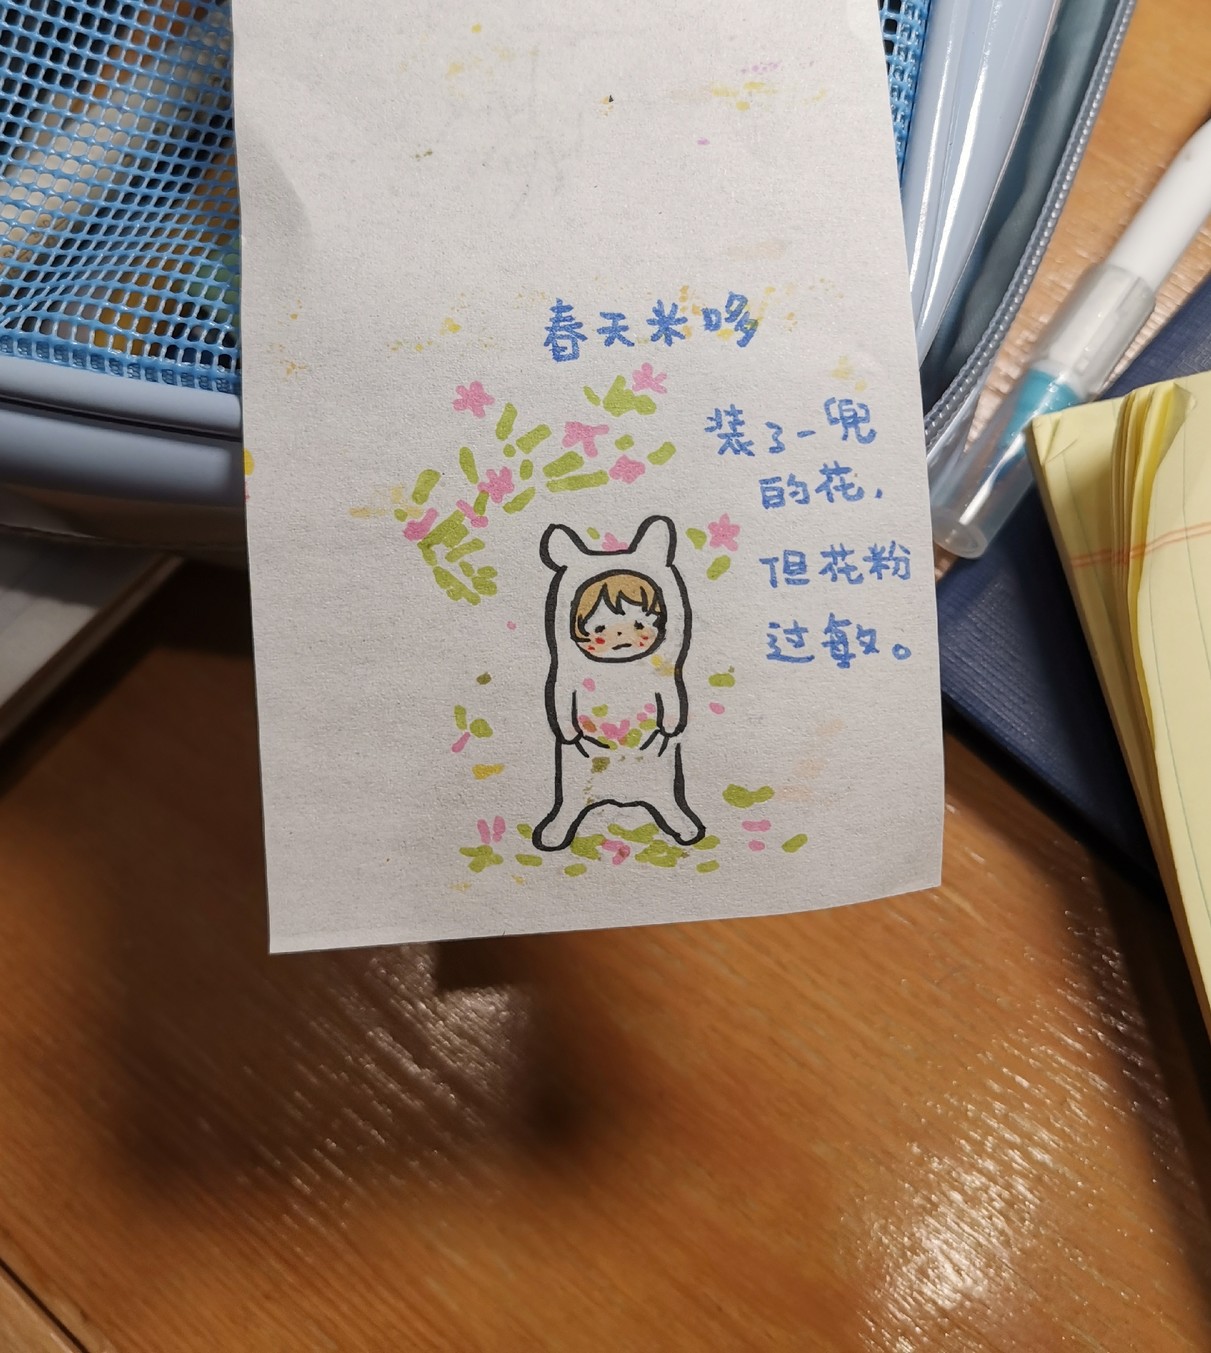 春天米哆
装了一兜
的花，
但花粉
过敏。